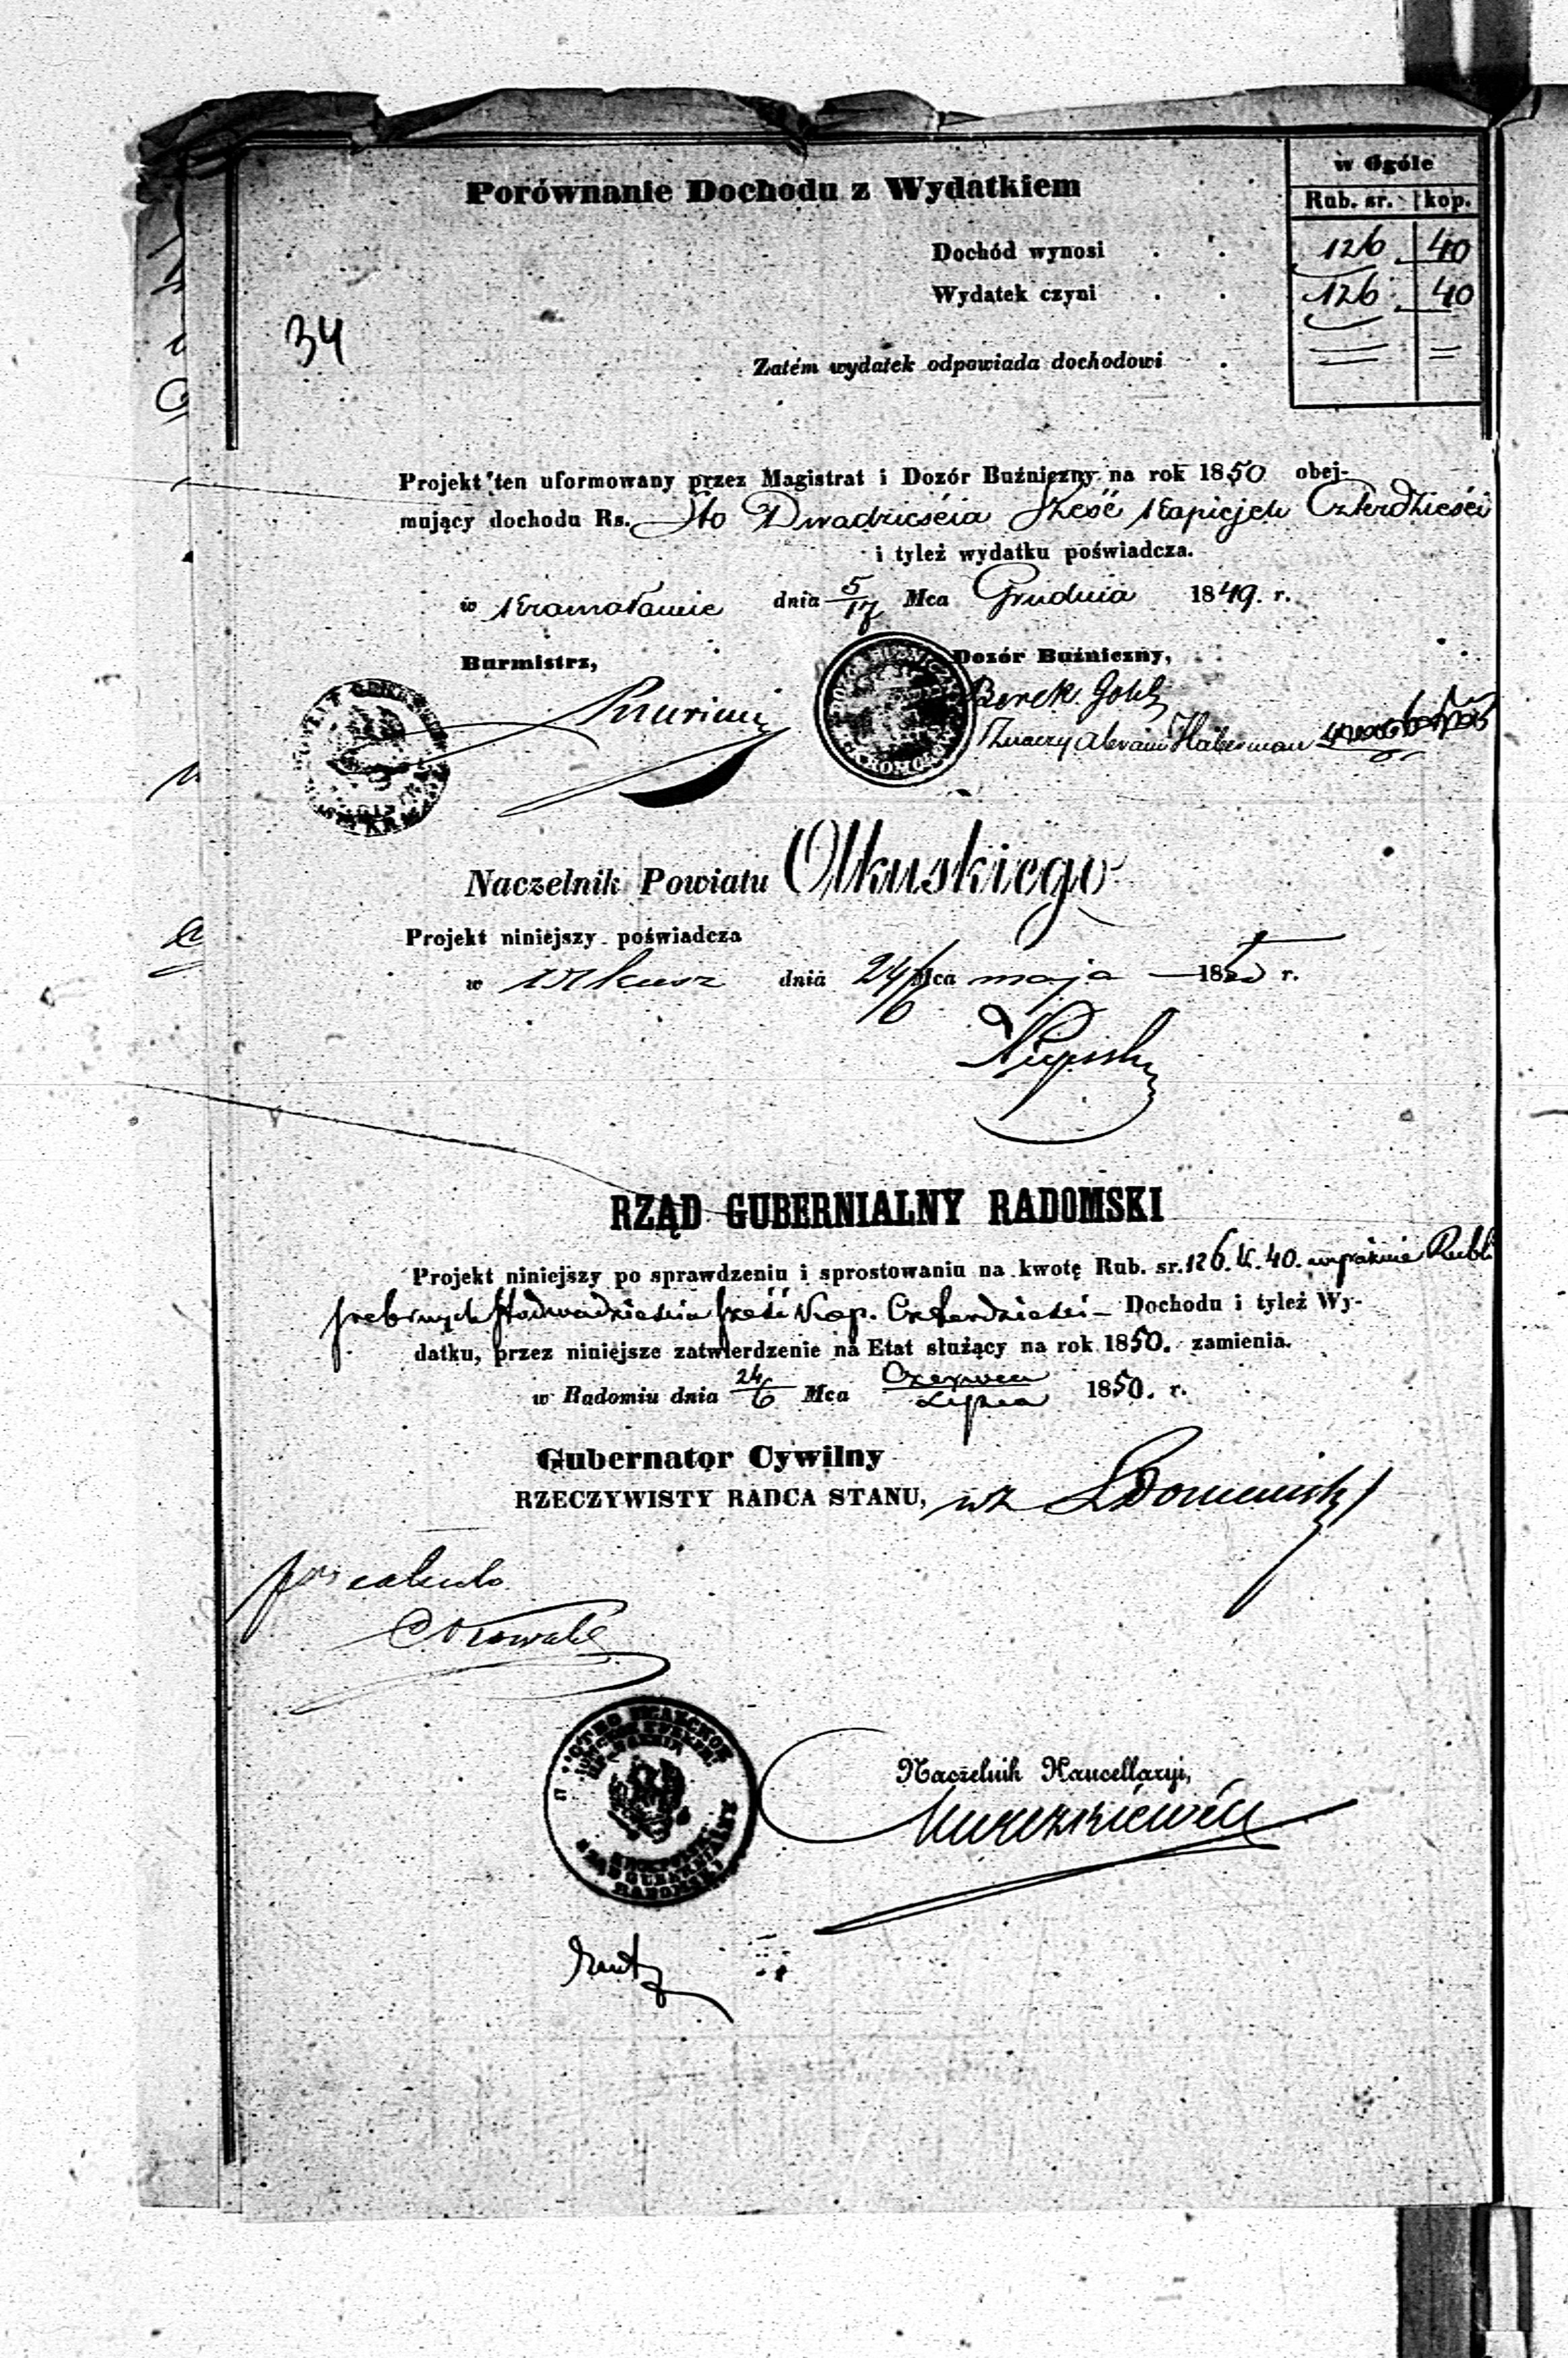 w Ogóle
Porównanie Dochodu z Wydatkiem
Rub. sr. kop.
Dochód wynosi . . 126 40
Wydatek czyni . . 126 40
34
Zatém wydatek odpowiada dochodowi .
Projekt ten uformowany przez Magistrat i Dozór Buźniczny na rok 1850 obej-
mujący dochodu Rs. Sto Dwadzieścia Sześć Kopiejek Czterdzieści
i tyleż wydatku poświadcza.
w Kromołowie dnia 5/17 Mca Grudnia 1849. r.
Burmistrz, Dozór Buźniczny,
Berek Gold
Haberman
Naczelnik Powiatu Olkuskiego
Projekt niniejszy poświadcza
w Olkusz dnia 24/6 Mca maja 1850 r.
RZĄD GUBERNIALNY RADOMSKI
Projekt niniejszy po sprawdzeniu i sprostowaniu na kwotę Rub. sr. 126. k. 40. wyraźnie Rubli
srebrnych Stodwadzieścia sześć Kop. Czterdzieści – Dochodu i tyleż Wy-
datku, przez niniejsze zatwierdzenie na Etat służący na rok 1850. zamienia.
w Radomiu dnia 24/6 Mca Czerwca/Lipca 1850. r.
Gubernator Cywilny
RZECZYWISTY RADCA STANU, wz
calculo
Nowak
Naczelnik Kancellaryi,
RADOMSKI